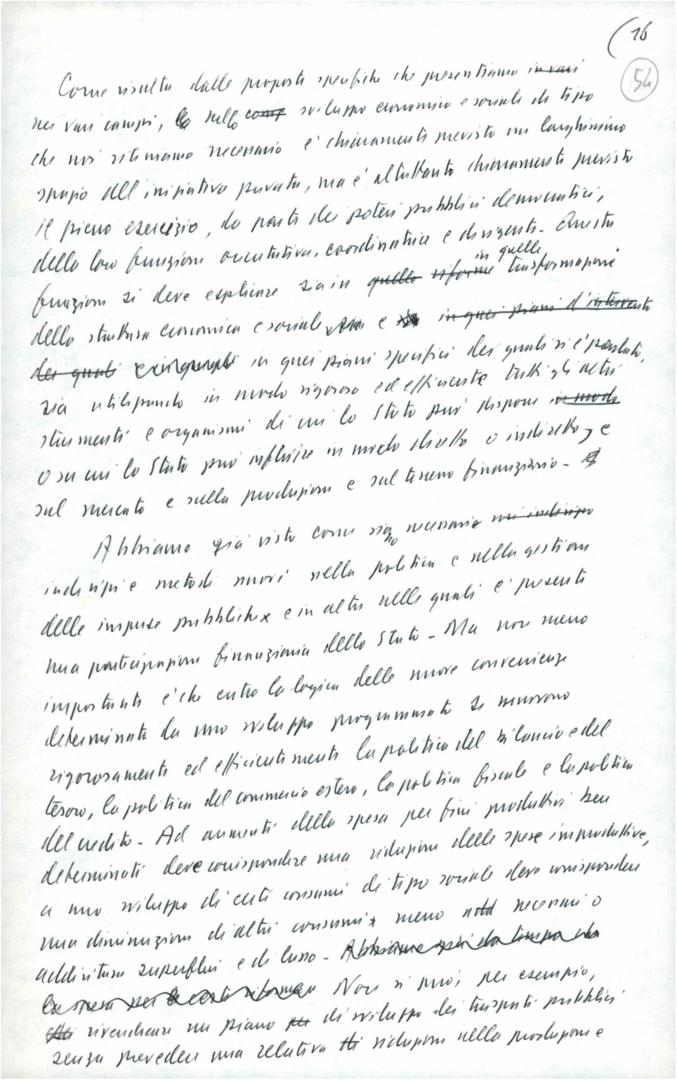 16
54
Come risulta dalle proposte specifiche che presentiamo in vari
nei vari campi, nello sviluppo economico e sociale di tipo
che noi riteniamo necessario è chiaramente previsto un larghissimo
spazio all'iniziativa privata, ma è altrettanto chiaramente previsto
il pieno esercizio, da parte dei poteri pubblici democratici,
della loro funzione orientativa, coordinatrice e dirigente. Questa
funzione si deve esplicare sia in quelle riforme in quelle trasformazioni
della struttura economica e sociale e in quei piani d'intervento
dei quali in quei piani specifici dei quali si è parlato,
sia utilizzando in modo rigoroso ed efficiente tutti gli altri
strumenti e organismi di cui lo Stato può disporre in modo
o su cui lo Stato può influire in modo diretto o indiretto, e
sul mercato e sulla produzione e sul terreno finanziario.
Abbiamo già visto come siano necessari nei indirizzi
indirizzi e metodi nuovi nella politica e nella gestione
delle imprese pubbliche e in altre nelle quali è presente
una partecipazione finanziaria dello Stato. Ma non meno
importante è che entro la logica delle nuove convenienze
determinate da uno sviluppo programmato si muovano
rigorosamente ed efficientemente la politica del bilancio e del
tesoro, la politica del commercio estero, la politica fiscale e la politica
del credito. Ad aumenti della spesa per fini produttivi ben
determinati deve corrispondere una riduzione delle spese improduttive,
a uno sviluppo di certi consumi di tipo sociale deve corrispondere
una diminuzione di altri consumi meno necessari o
addirittura superflui e di lusso.
Non si può, per esempio,
rivendicare un piano per di sviluppo dei trasporti pubblici
senza prevedere una relativa riduzione nella produzione e